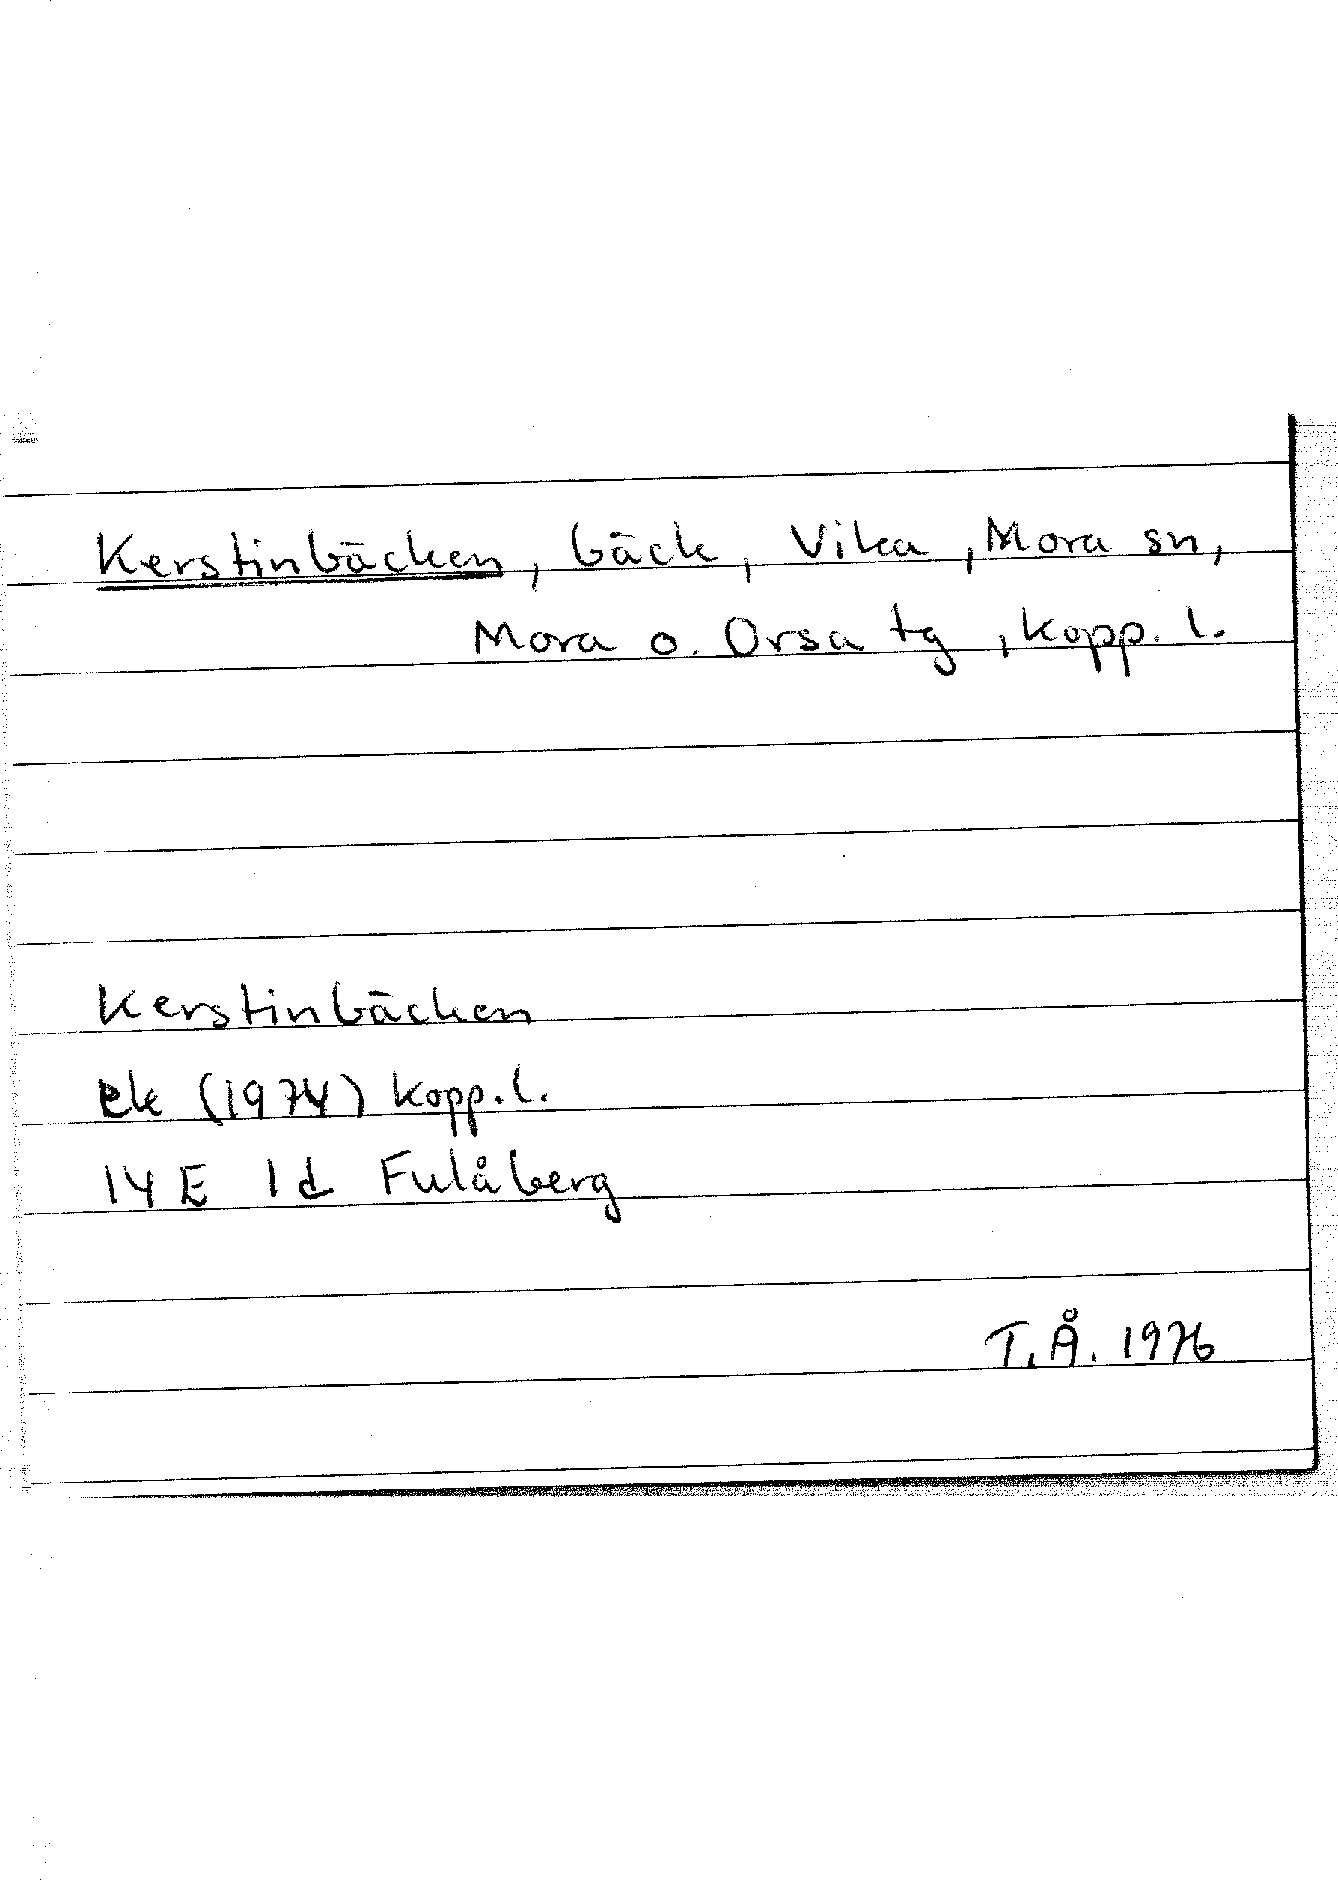 Kerstinbäcken, bäck, Vika, Mora sn,
Mora o. Orsa tg, Kopp. l.
Kerstinbäcken
ek (1974) Kopp. l.
14 E 1d Fulåberg
T.Å. 1976